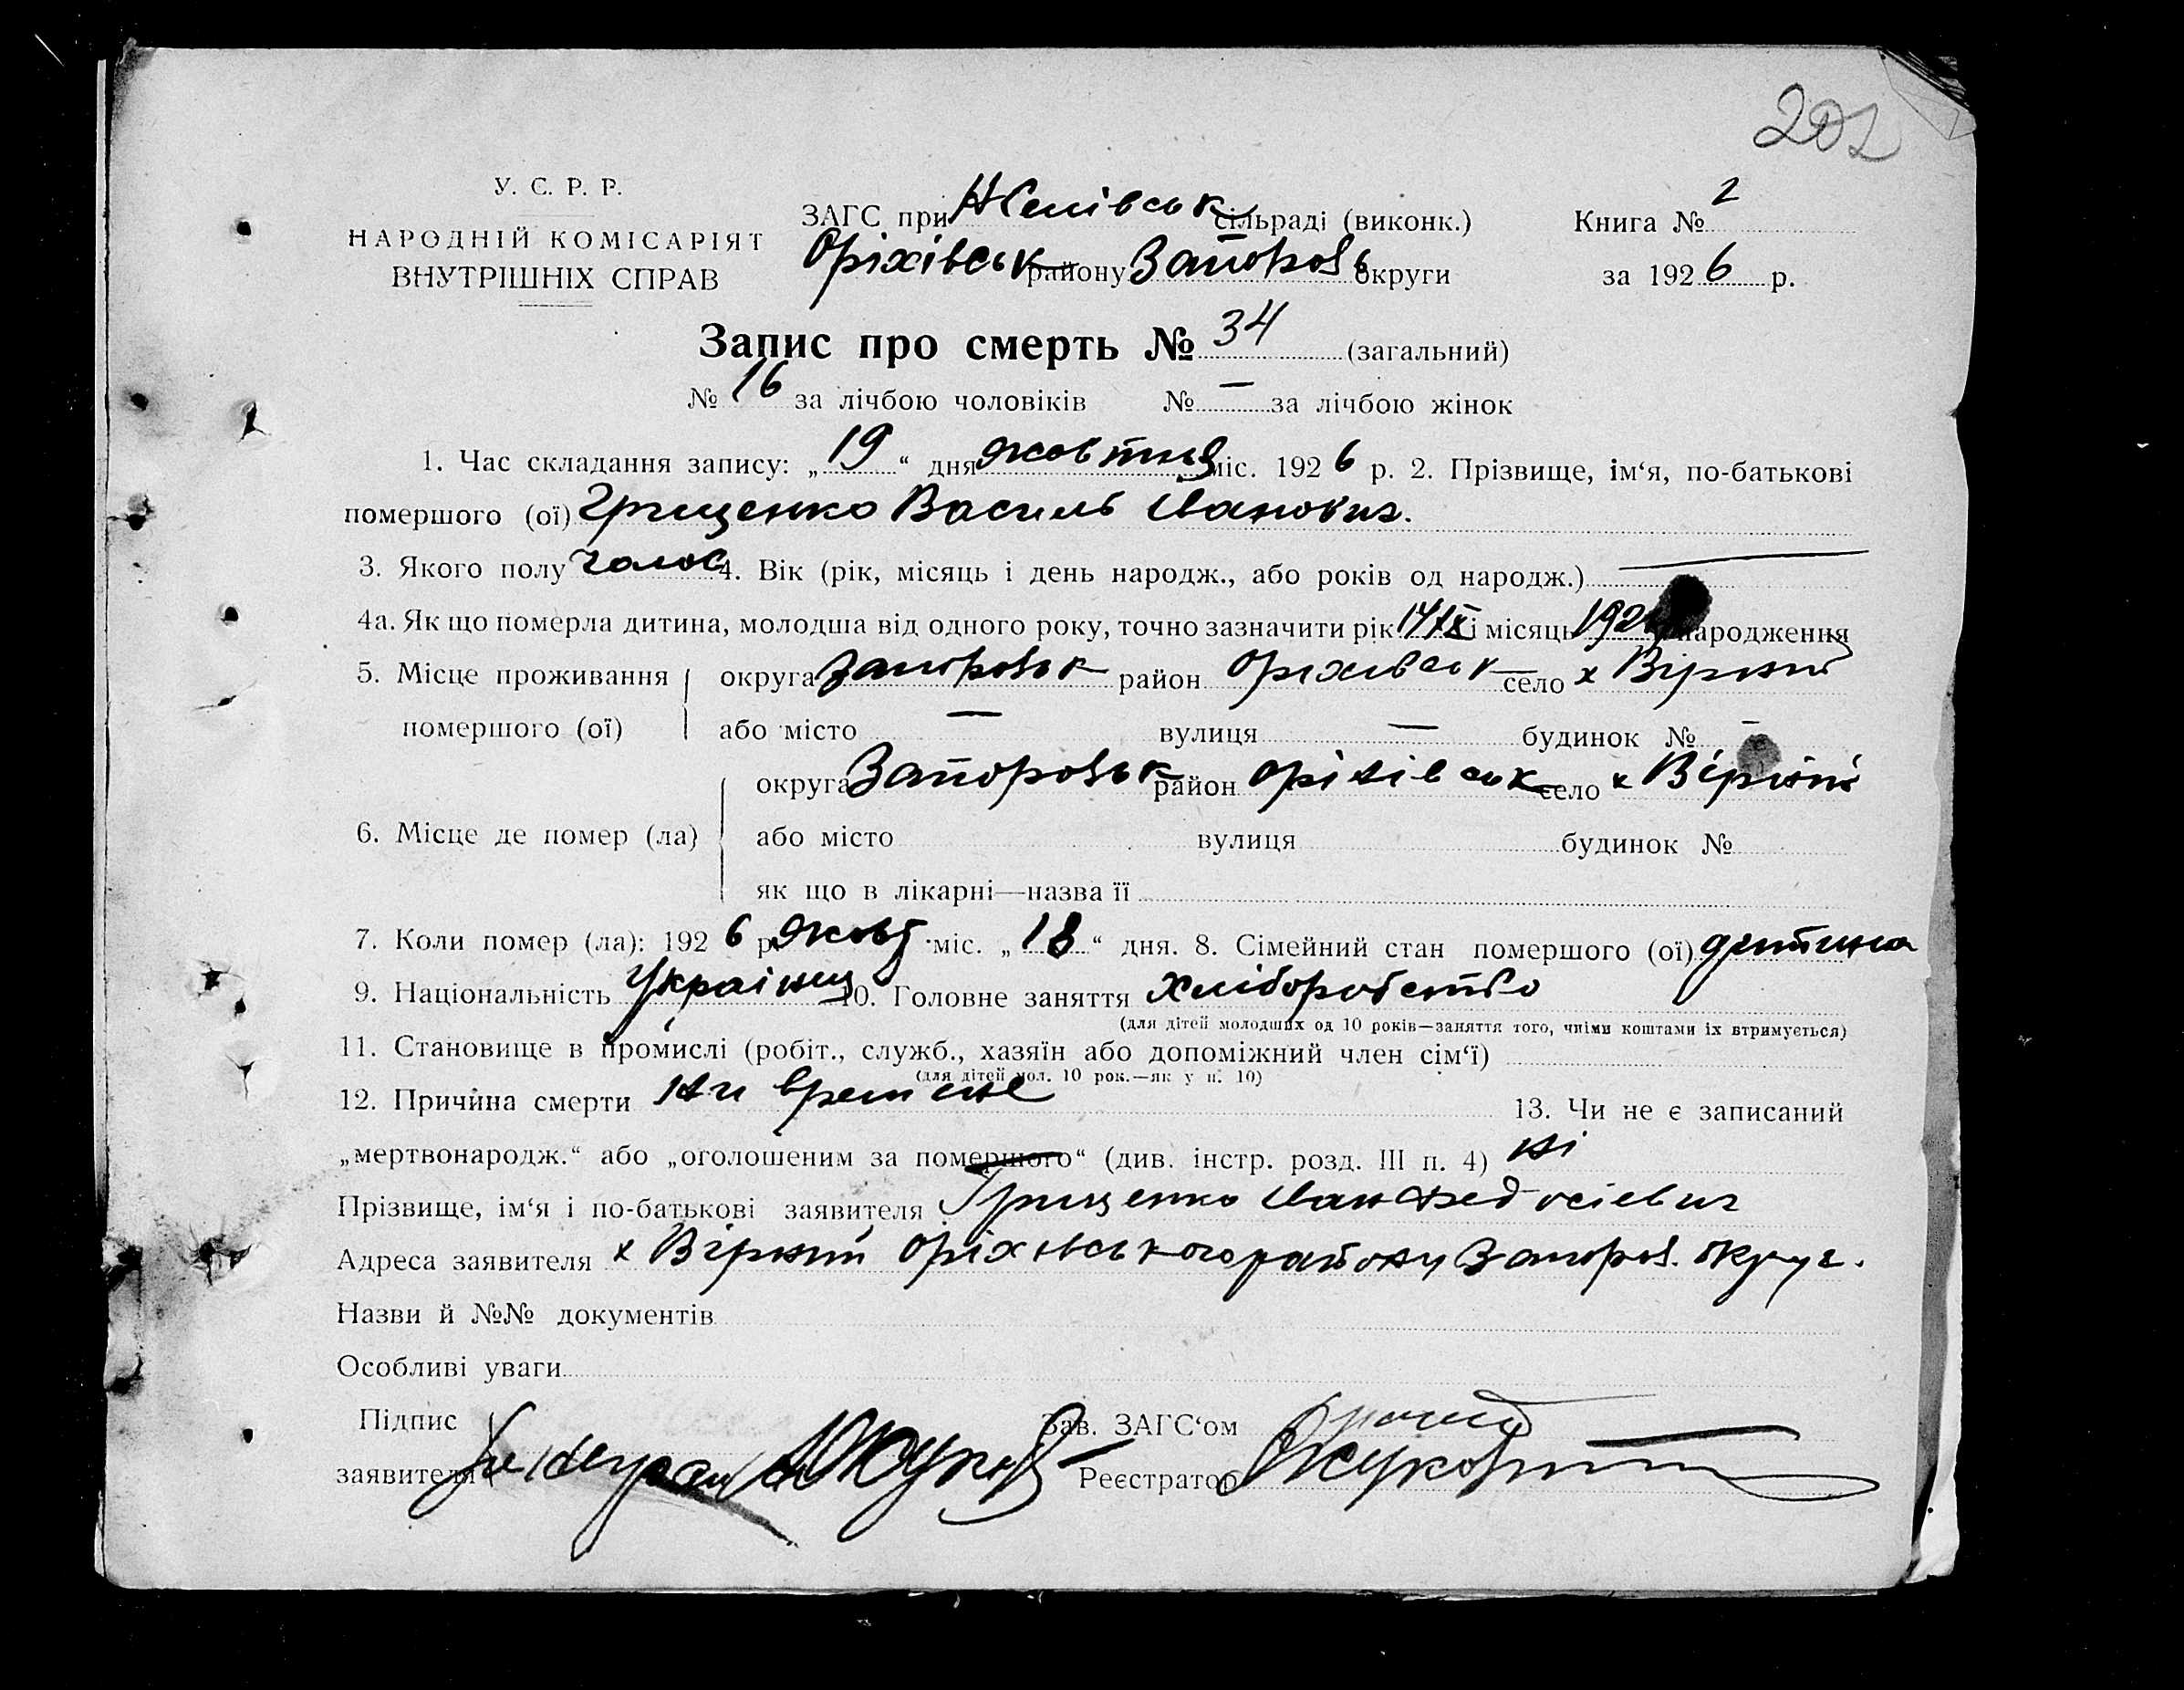 202
У. С. Р. Р.
НАРОДНІЙ КОМІСАРІЯТ
ВНУТРІШНІХ СПРАВ
ЗАГС при сільраді (виконк.)
Оріхівськ району Запорозь округи
Книга № 2
за 1926 р.
Запис про смерть № 34 (загальний)
№ 16 за лічбою чоловіків № — за лічбою жінок
1. Час складання запису: „19“ дня жовтня міс. 1926 р. 2. Прізвище, ім‘я, по-батькові
помершого (ої) Грищенко Василь Іванович.
3. Якого полу чолов 4. Вік (рік, місяць і день народж., або років од народж.) —
4а. Як що померла дитина, молодша від одного року, точно зазначити рік 14/ІХ і місяць народження
5. Місце проживання помершого (ої) округа Запорозьк район Оріхівськ село х Вірний
або місто — вулиця — будинок № —
6. Місце де помер (ла) округа Запорозьк район Оріхівськ село х Вірний
або місто вулиця будинок №
як що в лікарні—назва її
7. Коли помер (ла): 1926 р. жовт міс. „18“ дня. 8. Сімейний стан помершого (ої) дитина
9. Національність Українец 10. Головне заняття Хліборобство
(для дітей молодших од 10 років—заняття того, чиїми коштами їх втримується)
11. Становище в промислі (робіт., служб., хазяїн або допоміжний член сім‘ї)
(для дітей мол. 10 рок.—як у п. 10)
12. Причина смерти 13. Чи не є записаний
„мертвонародж.“ або „оголошеним за помершого“ (див. інстр. розд. III п. 4) ні
Прізвище, ім‘я і по-батькові заявителя Грищенко Іван Федосієвич
Адреса заявителя х Вірний Оріхівського району Запороз. округ.
Назви й №№ документів
Особливі уваги
Підпис заявителя
Зав. ЗАГС‘ом
Реєстратор